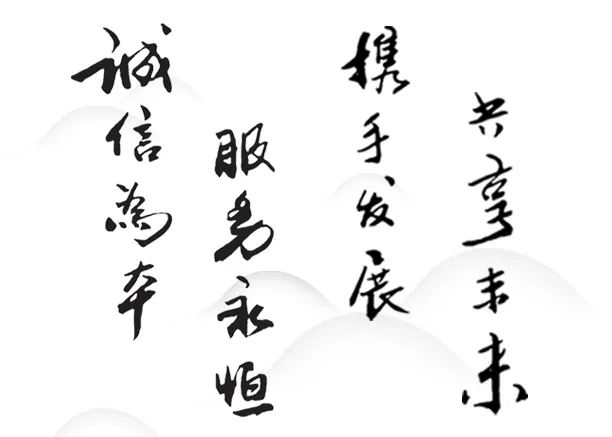 诚信為本
服务永恒
携手发展
共享未来